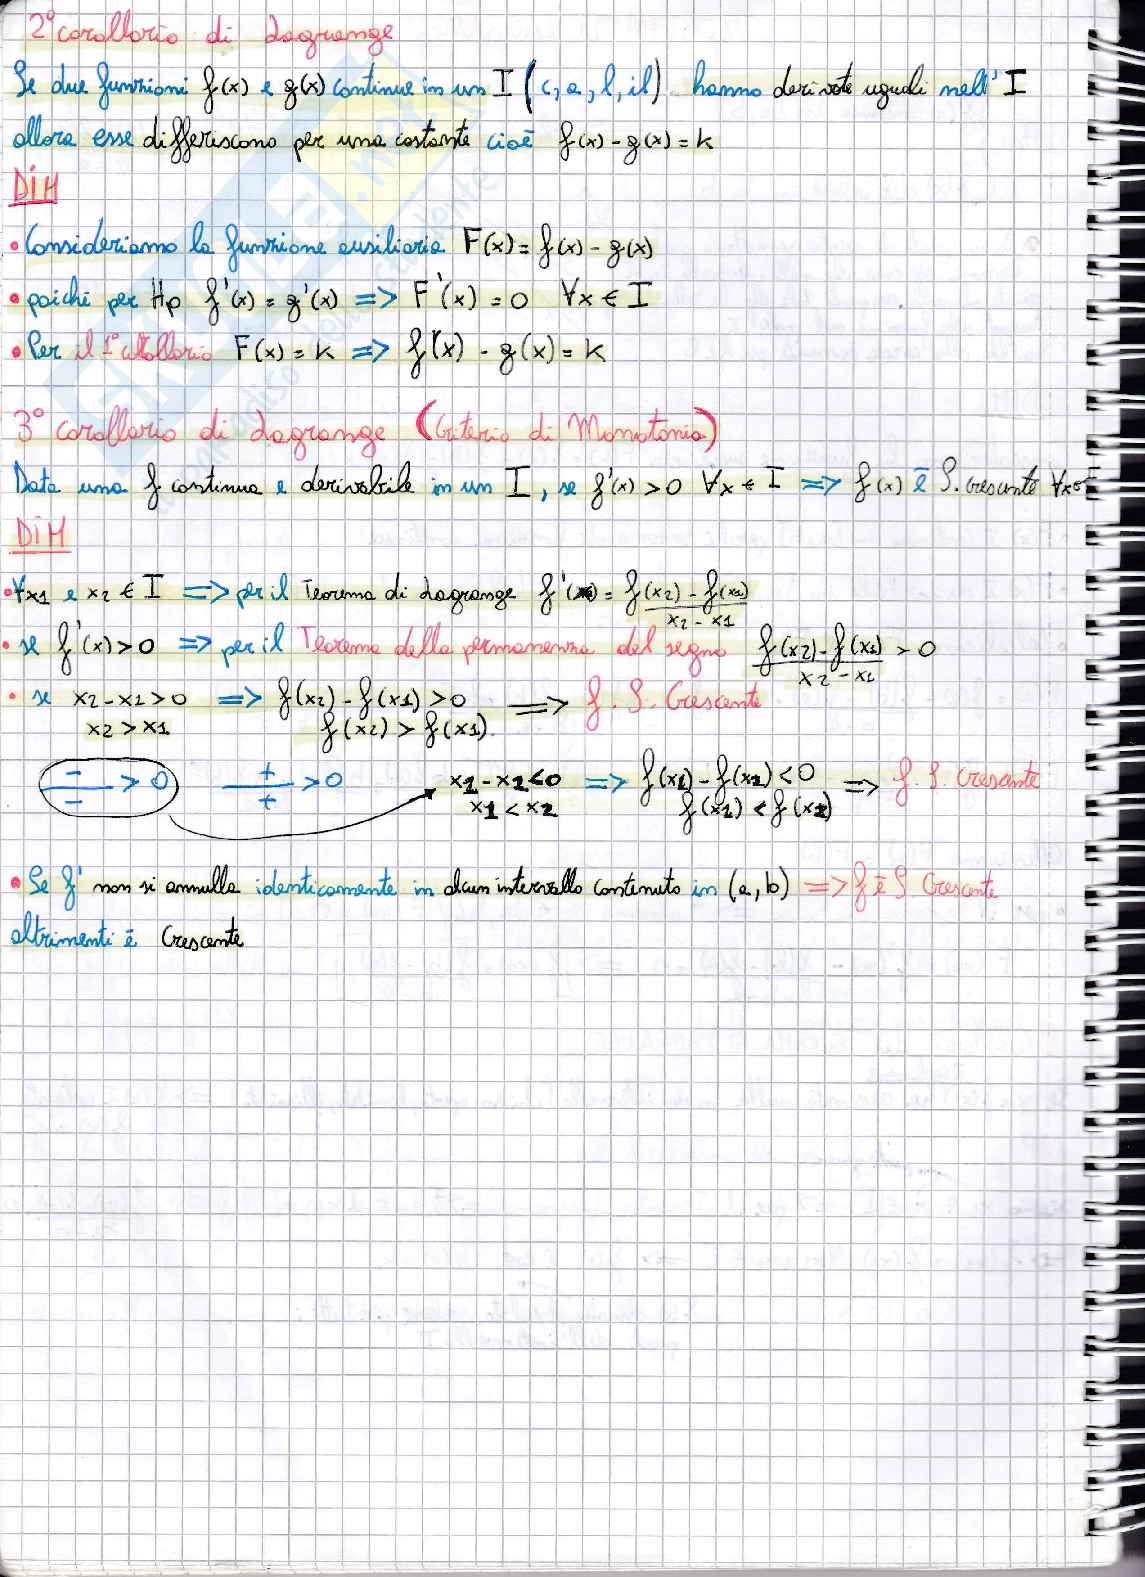 2° corollario di Lagrange
Se due funzioni f(x) e g(x) continue in un I (c, a, l, il) hanno derivate uguali nell' I
allora esse differiscono per una costante cioè f(x) - g(x) = k
DIM
• Consideriamo la funzione ausiliaria F(x) = f(x) - g(x)
• poiché per Hp f'(x) = g'(x) => F'(x) = 0 ∀x ∈ I
• Per il 1° corollario F(x) = k => f(x) - g(x) = k
3° corollario di Lagrange (Criterio di Monotonia)
Data una f continua e derivabile in un I, se f'(x) > 0 ∀x ∈ I => f(x) è S. Crescente ∀x∈I
DIM
• ∀x1 e x2 ∈ I => per il Teorema di Lagrange f'(x) = f(x2) - f(x1) / x2 - x1
• se f'(x) > 0 => per il Teorema della permanenza del segno f(x2) - f(x1) / x2 - x1 > 0
• se x2 - x1 > 0 => f(x2) - f(x1) > 0 => f. S. Crescente
x2 > x1 f(x2) > f(x1)
- / - > 0 + / + > 0 x1 - x2 < 0 => f(x1) - f(x2) < 0 => f. S. Crescente
x1 < x2 f(x1) < f(x2)
• Se f' non si annulla identicamente in alcun intervallo contenuto in (a, b) => f è S Crescente
altrimenti è Crescente